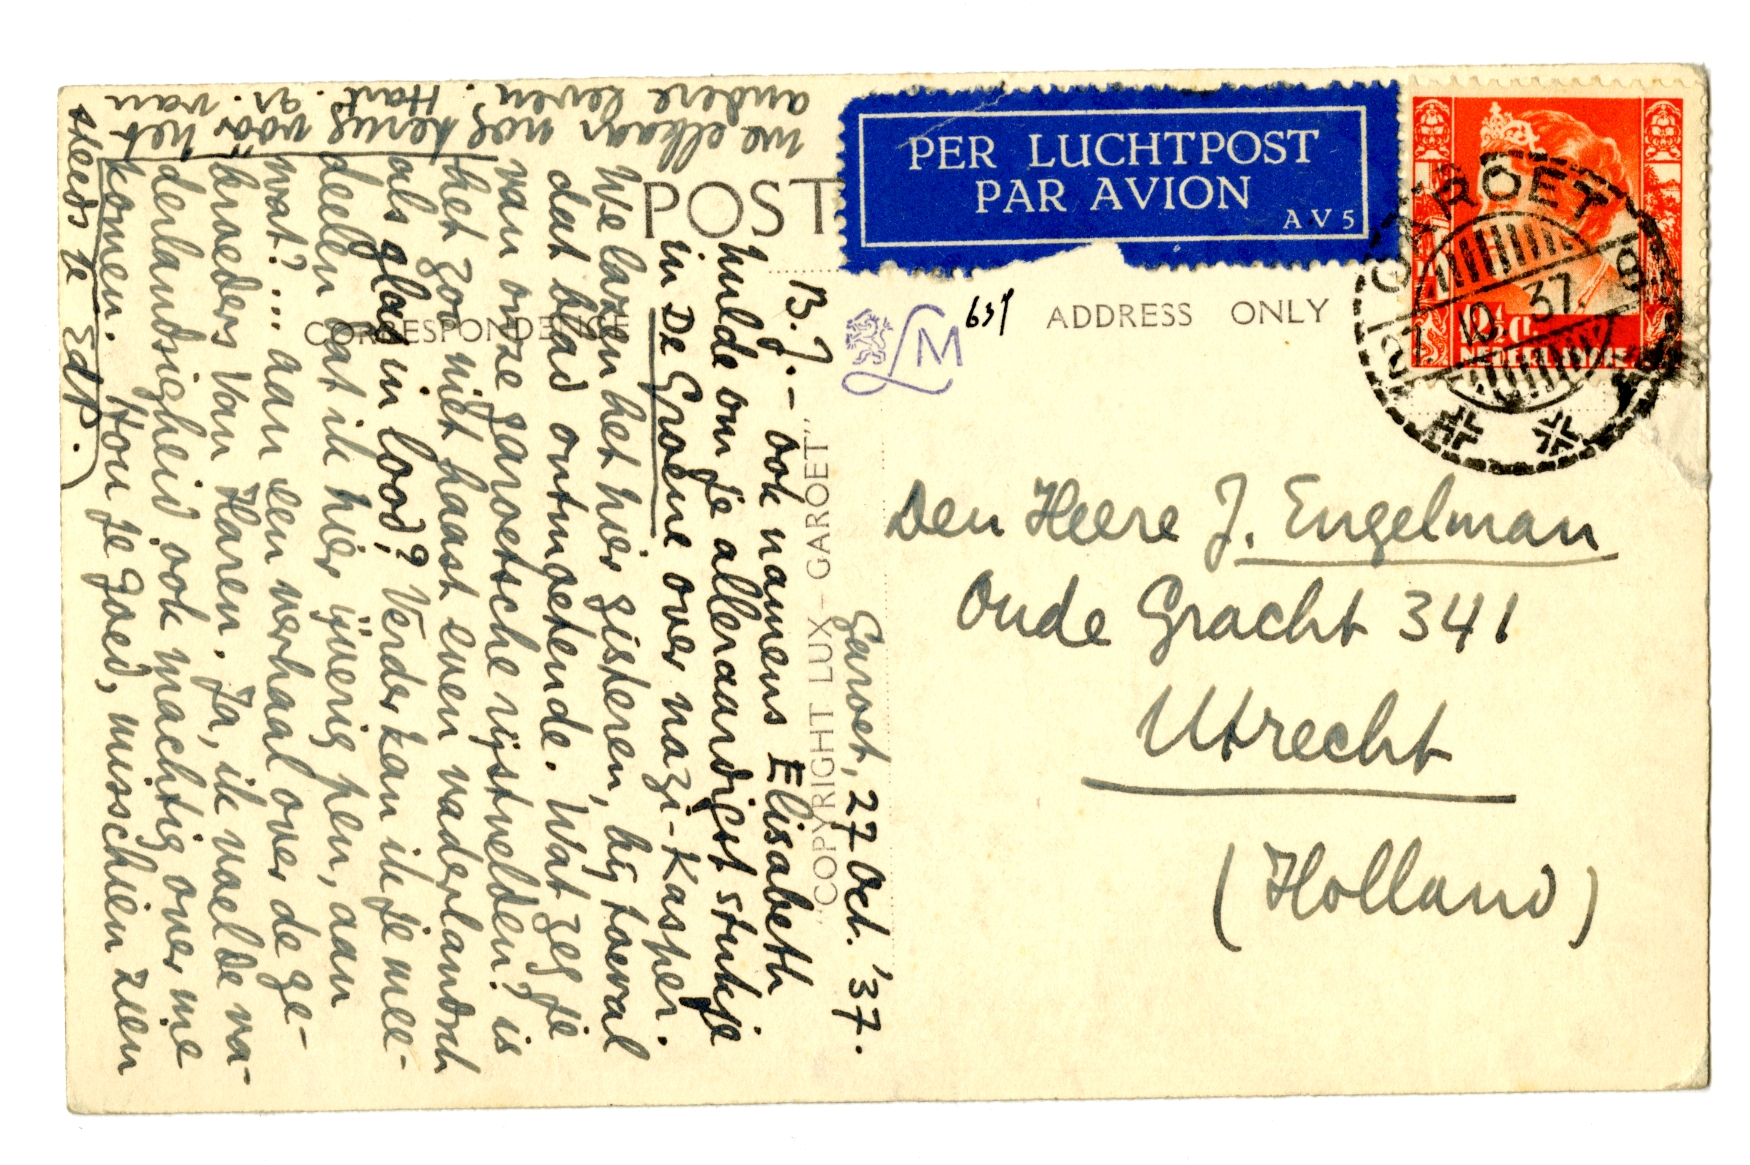 PER LUCHTPOST
PAR AVION
AV5
POST
CORRESPONDENCE
ADDRESS ONLY
LM
631
GAROET
27.10.37. 9
"COPYRIGHT LUX - GAROET"
Den Heere J. Engelman
Oude Gracht 341
Utrecht
(Holland)
Garoet, 27 Oct. '37.
B.J. - ook namens Elisabeth
hulde om je alleraardigst stukje
in De Groene over nazi-Kasper.
We lazen het hier gisteren, bij toeval
dat blad ontmoetende. Wat zeg je
van onze garoetsche rijstvelden? is
het zoo niet haast even vaderlandsch
als glas in lood? Verder kan ik je mee-
deelen dat ik hier ijverig pen, aan
wat?... aan een verhaal over de ge-
broeders Van Haren. Ja, ik voelde va-
derlandsigheid ook machtig over me
komen. Hou je goed, misschien zien
we elkaar nog terug vóór het
andere leven. Hart. gr. van
steeds te EdP.